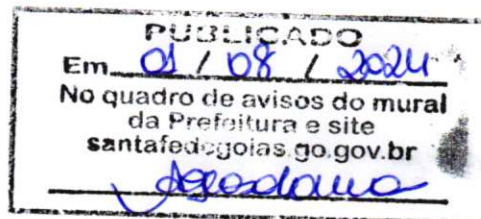 PUBLICADO
Em 01 / 08 / 2024
No quadro de avisos do mural
da Prefeitura e site
santafedegoias.go.gov.br